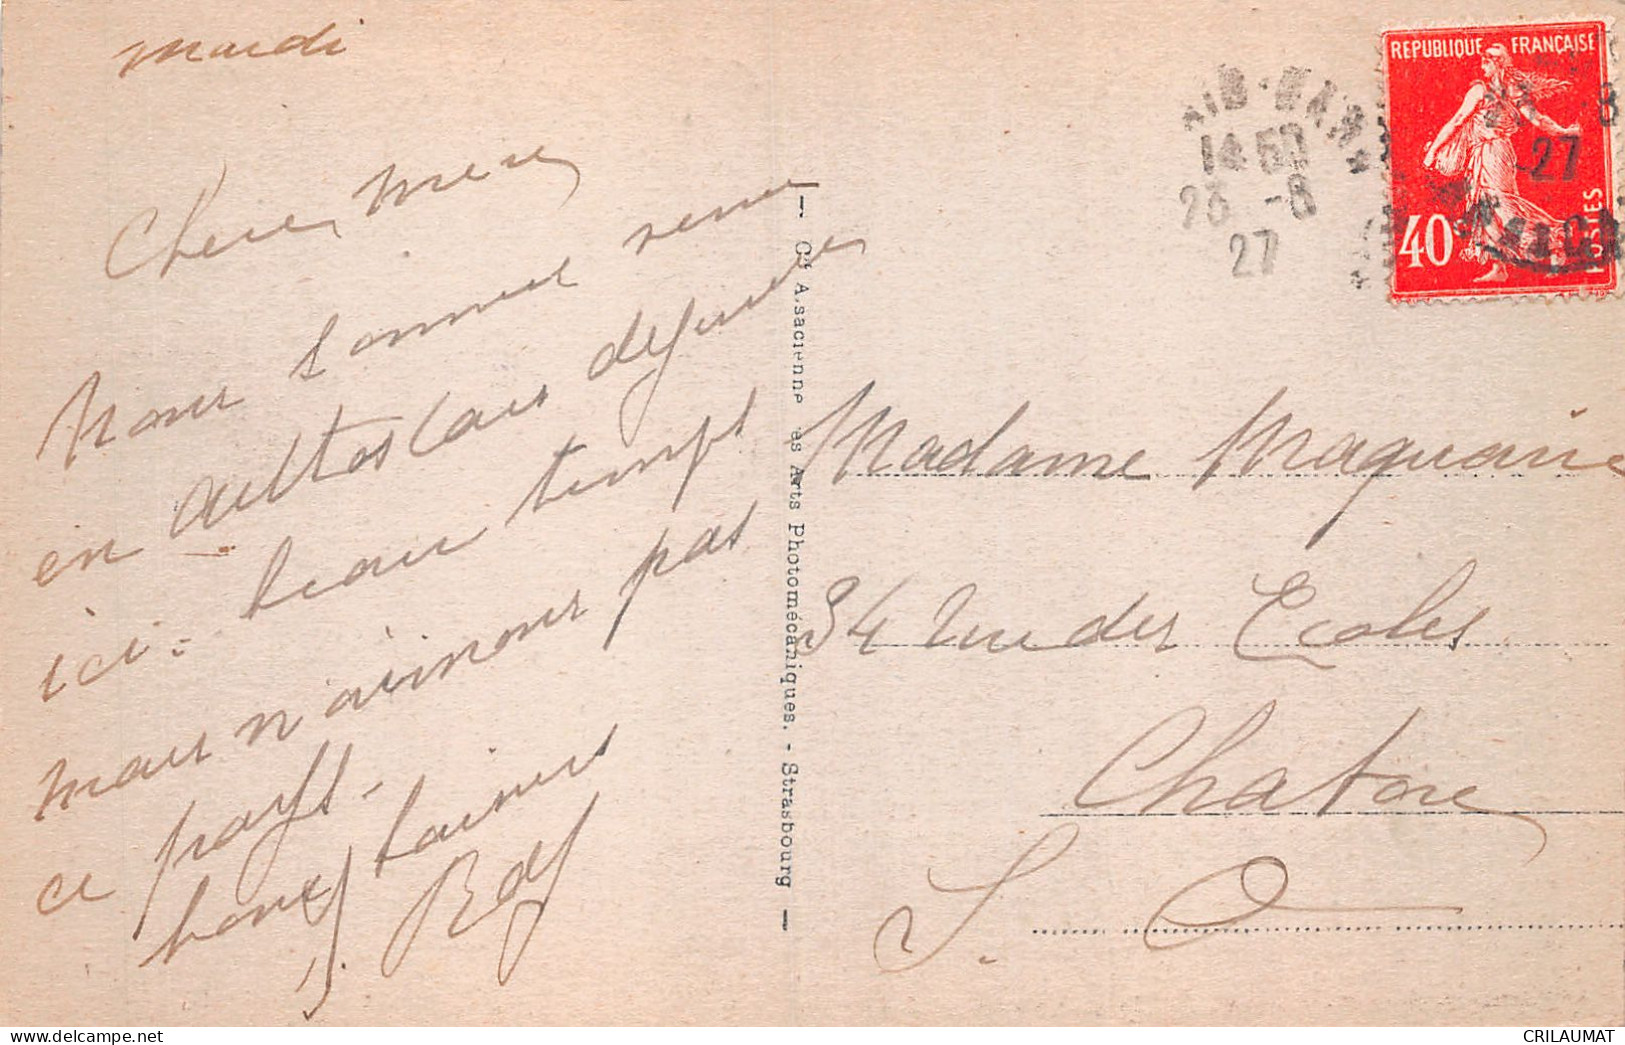 mardi
Chere mere
Nous sommes venu
en autos cars dejeuner
ici - beau temps
mais n'aimons pas
ce pays -
bons baisers
REPUBLIQUE FRANÇAISE
40c
POSTES
14 50
23 -8
27
-8
27
Madame Maquaire
34 rue des Ecoles
Chatou
S. O.
— Cie Alsacienne des Arts Photomécaniques. - Strasbourg —
CRILAUMAT